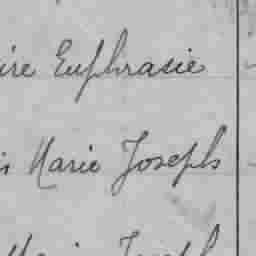 ire Euphrasie
is Marie Joseph
Marie Joseph